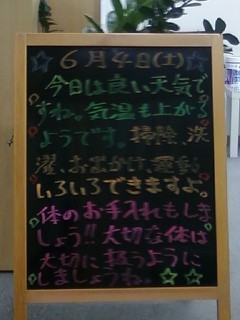 6月4日(土)
今日は良い天気で
すね。気温も上がる
ようです。掃除、洗
濯、お出かけ、
いろいろできますよ。
体のお手入れもしま
しょう!!大切な体は
大切に扱うように
しましょうね。☆☆